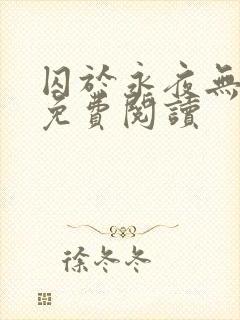 囚於永夜無
免費閱讀
徐冬冬